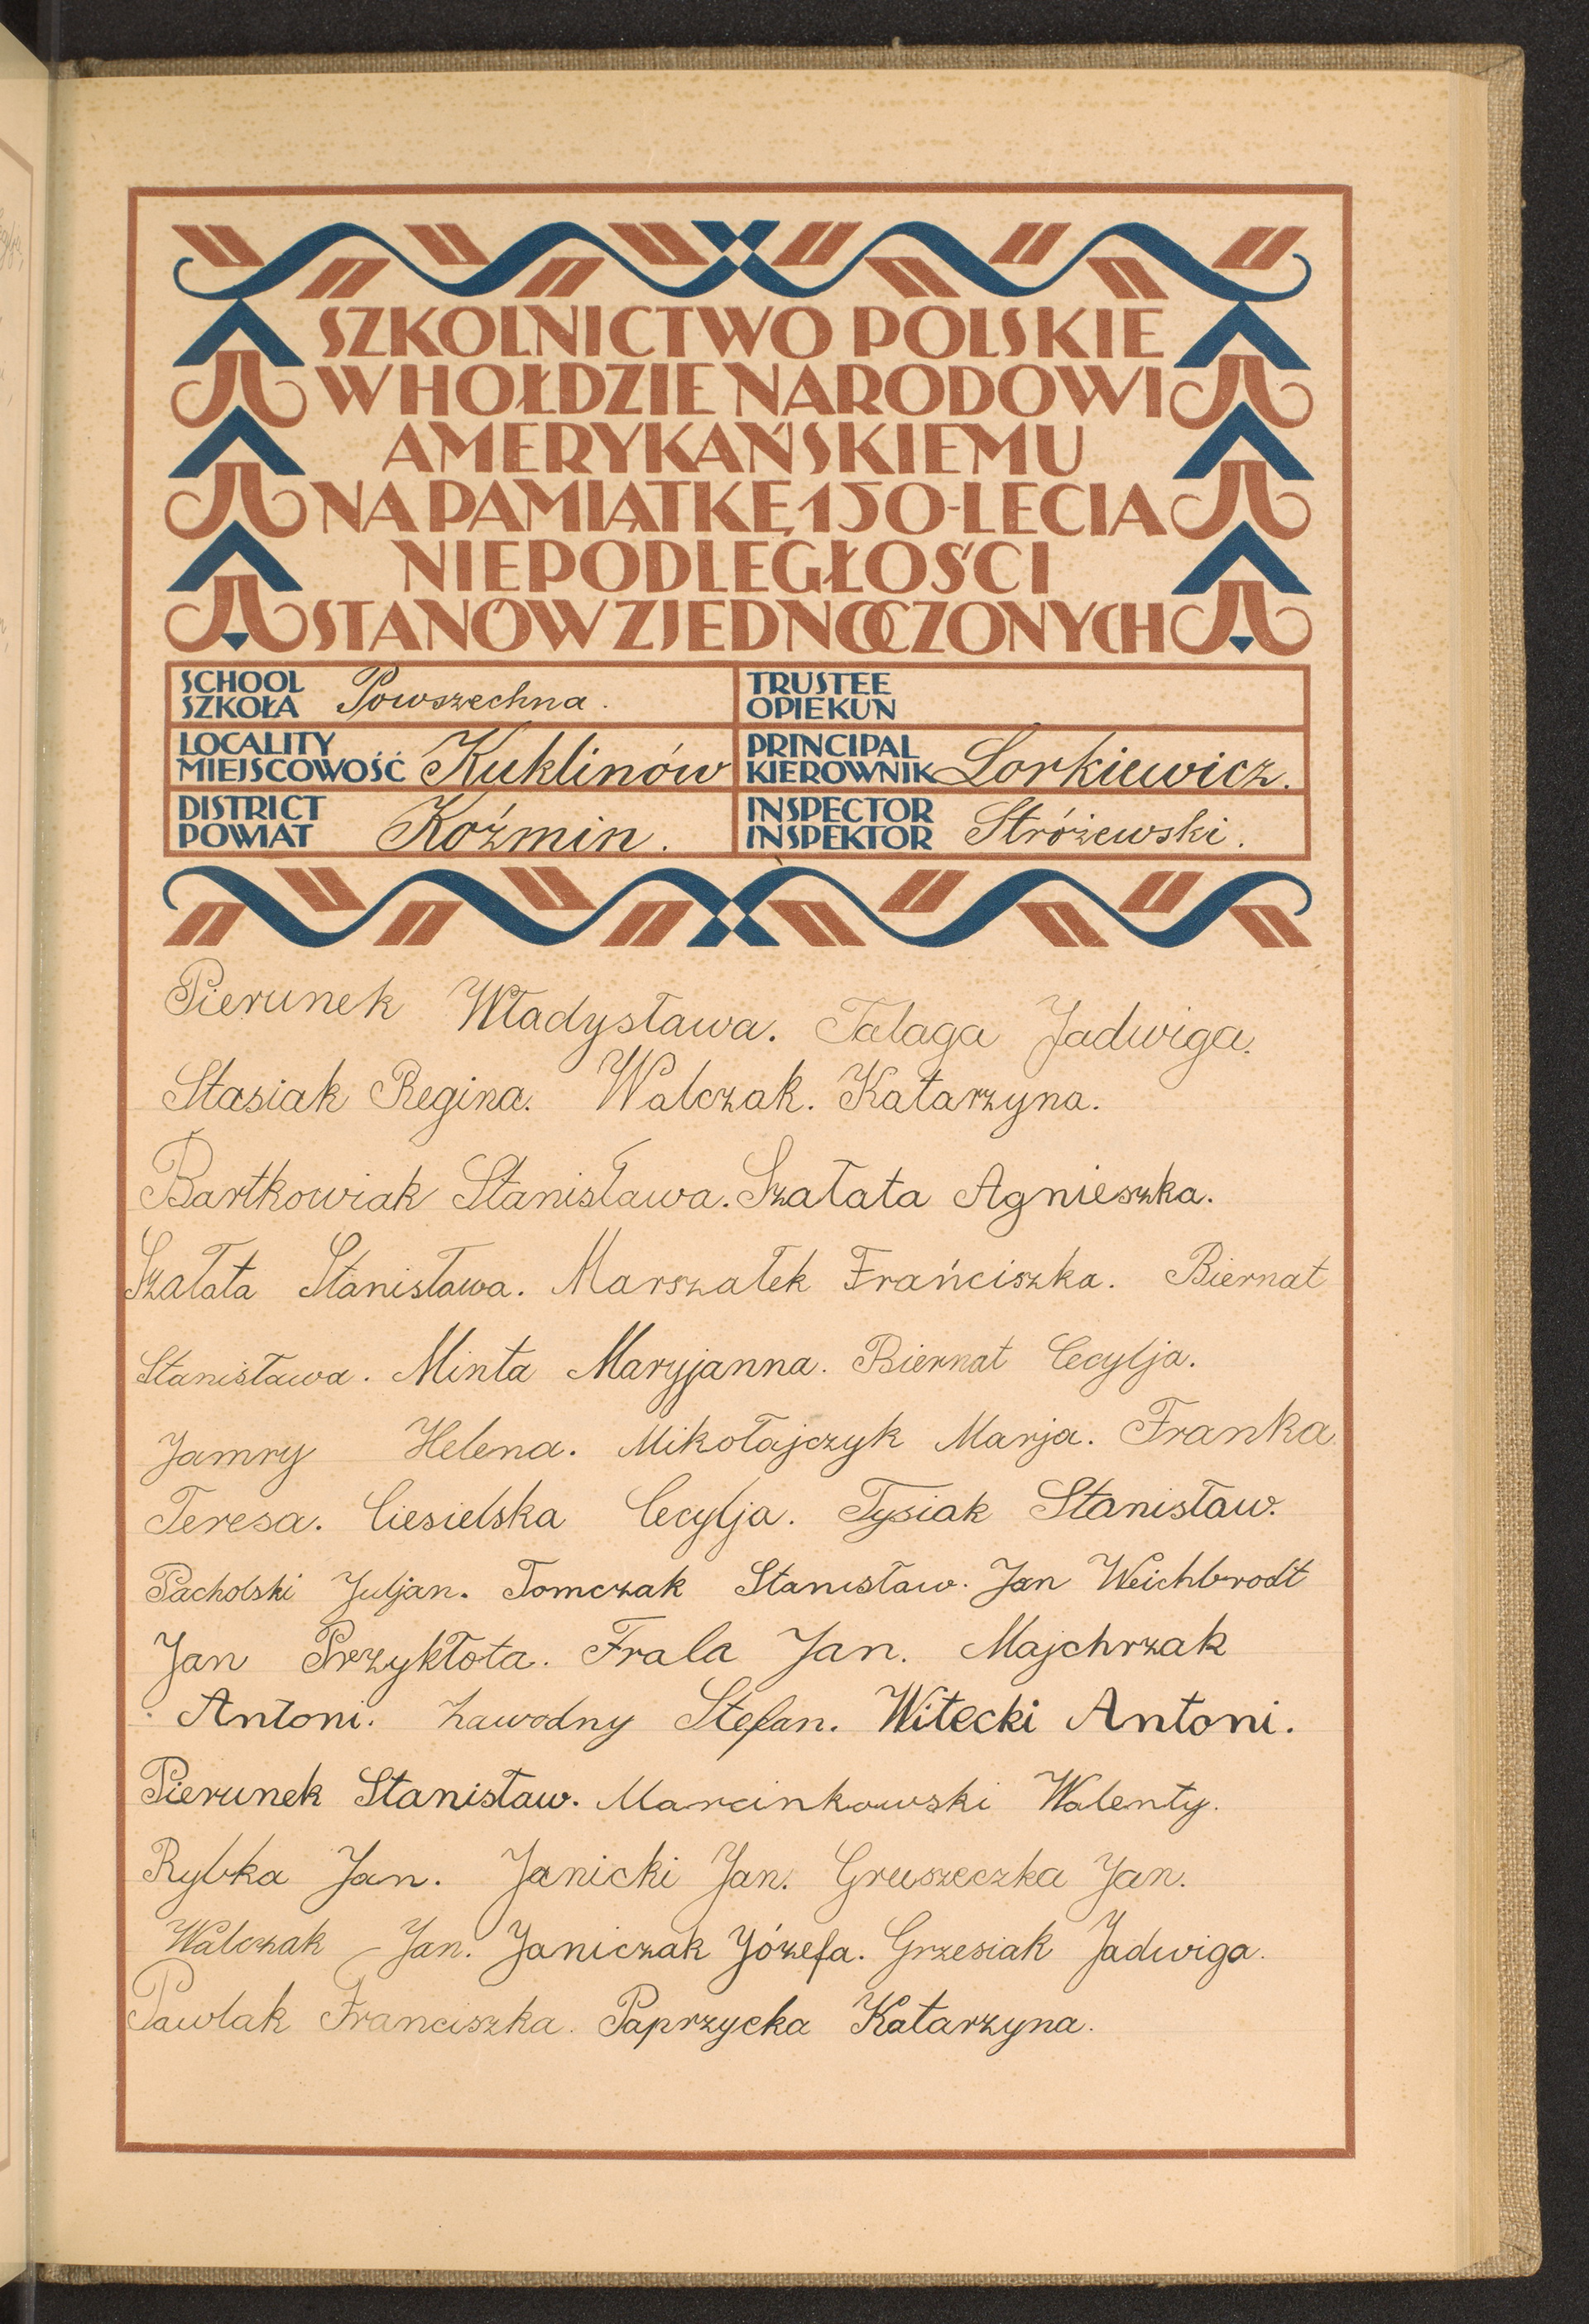 SZKOLNICTWO POLSKIE
W HOŁDZIE NARODOWI
AMERYKAŃSKIEMU
NA PAMIĄTKĘ 150-LECIA
NIEPODLEGŁOŚCI
STANÓW ZJEDNOCZONYCH
SCHOOL SZKOŁA Powszechna. TRUSTEE OPIEKUN
LOCALITY MIEJSCOWOŚĆ Kuklinów PRINCIPAL KIEROWNIK Lorkiewicz.
DISTRICT POWIAT Koźmin. INSPECTOR INSPEKTOR Stróżewski.
Pierunek Władysława. Talaga Jadwiga.
Stasiak Regina. Walczak. Katarzyna.
Bartkowiak Stanisława. Szałata Agnieszka.
Szałata Stanisława. Marszałek Frańciszka. Biernat
Stanisława. Minta Maryjanna. Biernat Cecylja.
Jamry Helena. Mikołajczyk Marja. Franka
Teresa. Ciesielska Cecylja. Tysiak Stanisław.
Pacholski Juljan. Tomczak Stanisław. Jan Weichbrodt
Jan Przykłota. Frala Jan. Majchrzak
Antoni. Zawodny Stefan. Witecki Antoni.
Pierunek Stanisław. Marcinkowski Walenty.
Rybka Jan. Janicki Jan. Gruszeczka Jan.
Walczak Jan. Janiczak Józefa. Grzesiak Jadwiga.
Pawlak Franciszka. Paprzycka Katarzyna.